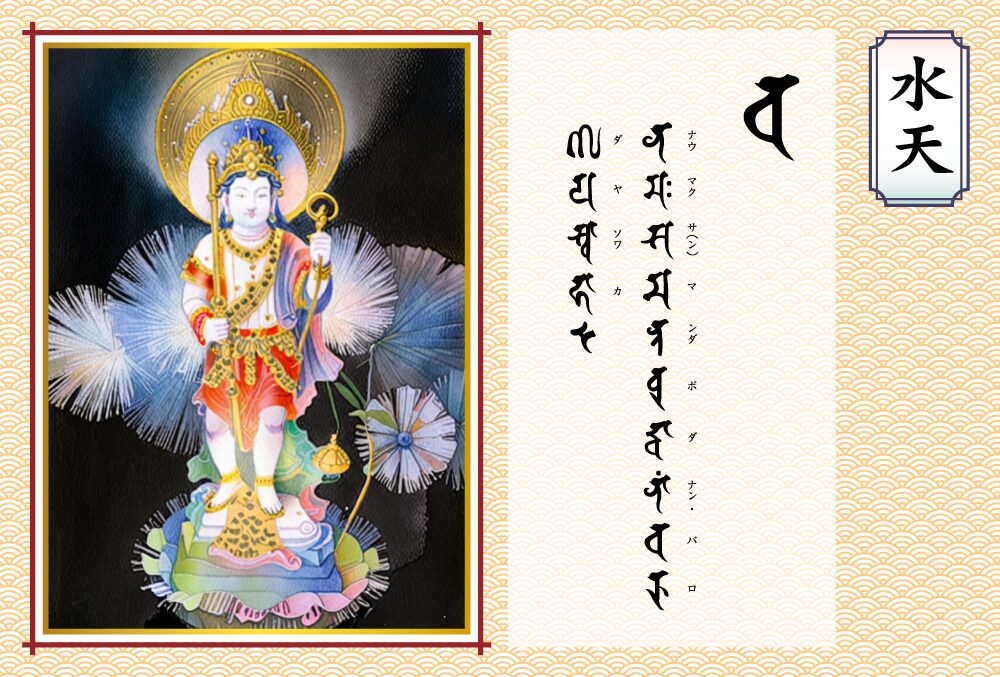 水天
𑖪
ナウマクサ(ン)マンダボダナン・バロ
𑖡𑖦𑖾𑖭𑖦𑖡𑖿𑖝𑖤𑖲𑖟𑖿𑖠𑖯𑖡𑖯𑖽𑖪𑖨𑖲
ダヤソワカ
𑖜𑖯𑖧𑖭𑖿𑖪𑖯𑖮𑖯